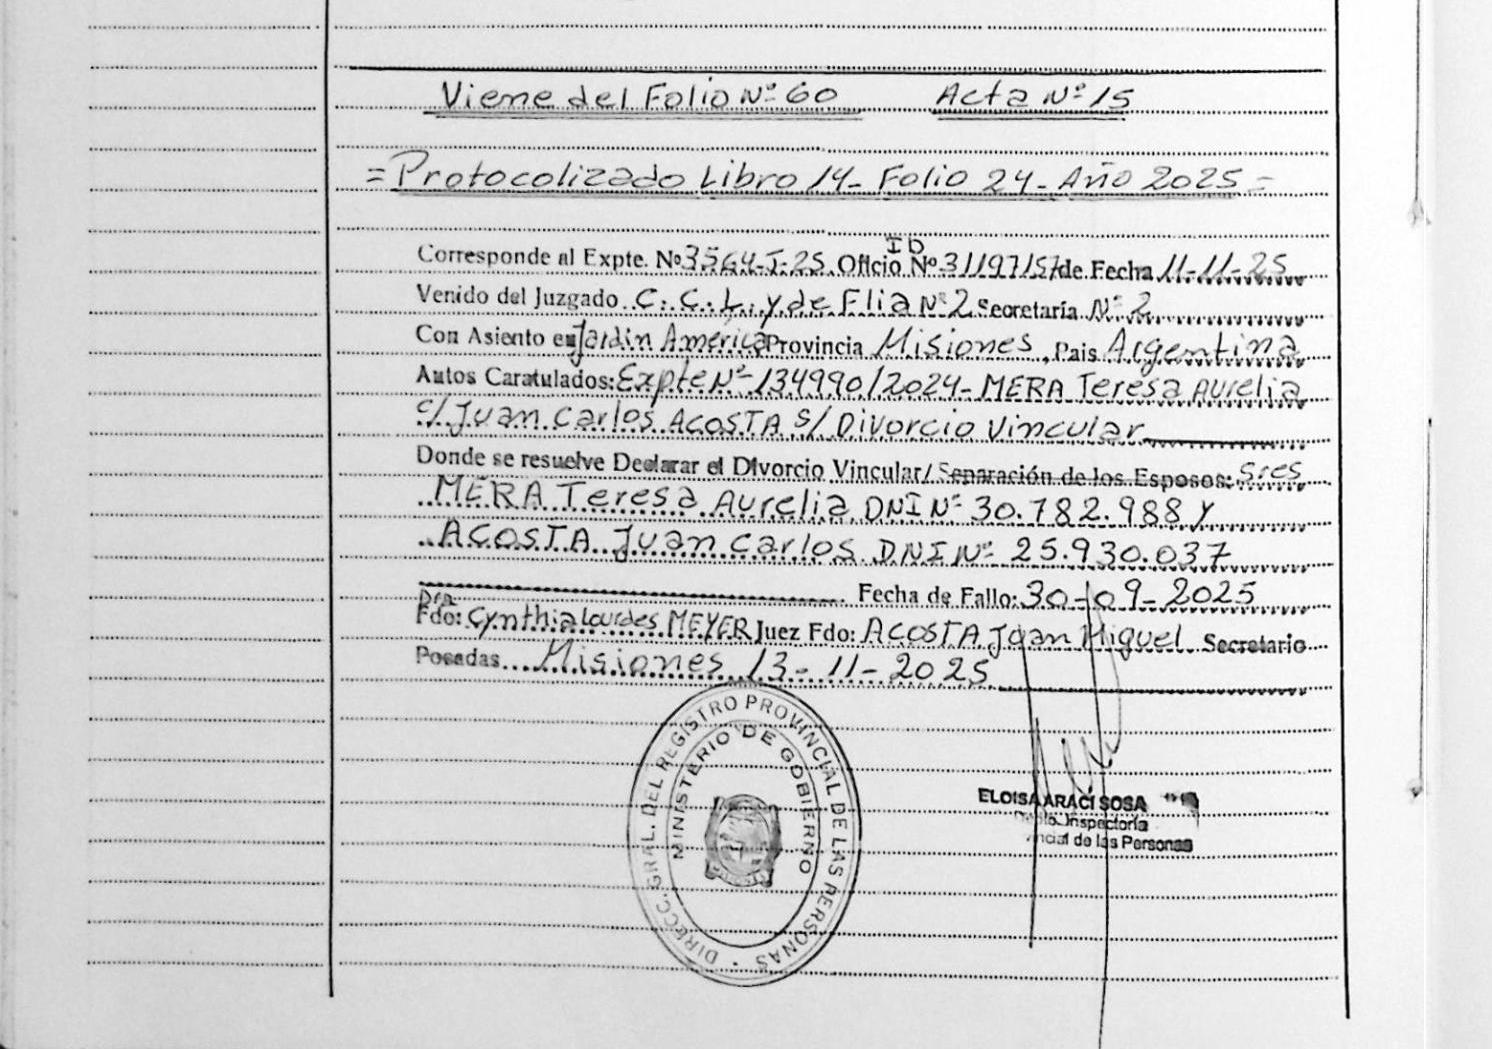 Viene del Folio Nº 60 Acta Nº 15
= Protocolizado Libro 14- Folio 24- Año 2025 =
Corresponde al Expte. Nº 3564-J-25. Oficio Nº ID 31197157 de Fecha 11-11-25
Venido del Juzgado C. C. L. y de Flia Nº 2 Secretaría Nº 2
Con Asiento en Jardín América Provincia Misiones, Pais Argentina
Autos Caratulados: Expte Nº 134990/2024- MERA Teresa Aurelia
c/ Juan Carlos ACOSTA s/ Divorcio Vincular
Donde se resuelve Declarar el Divorcio Vincular/ Separación de los Esposos: Sres
MERA Teresa Aurelia DNI Nº 30.782.988 y
ACOSTA Juan Carlos DNI Nº 25.930.037
Fecha de Fallo: 30-09-2025
Dra
Fdo: Cynthia Lourdes MEYER Juez Fdo: ACOSTA Juan Miguel Secretario
Posadas Misiones 13-11-2025
DIRECC. GRAL. DEL REGISTRO PROVINCIAL DE LAS PERSONAS
MINISTERIO DE GOBIERNO
ELOISA ARACI SOSA
Inspectoría
de las Personas